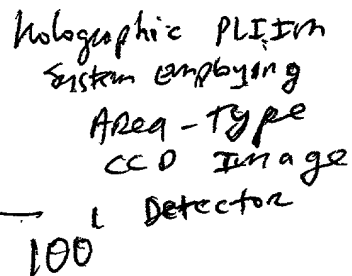 Holographic PLIIM
System Employing
Area-Type
CCD Image
Detector
100'